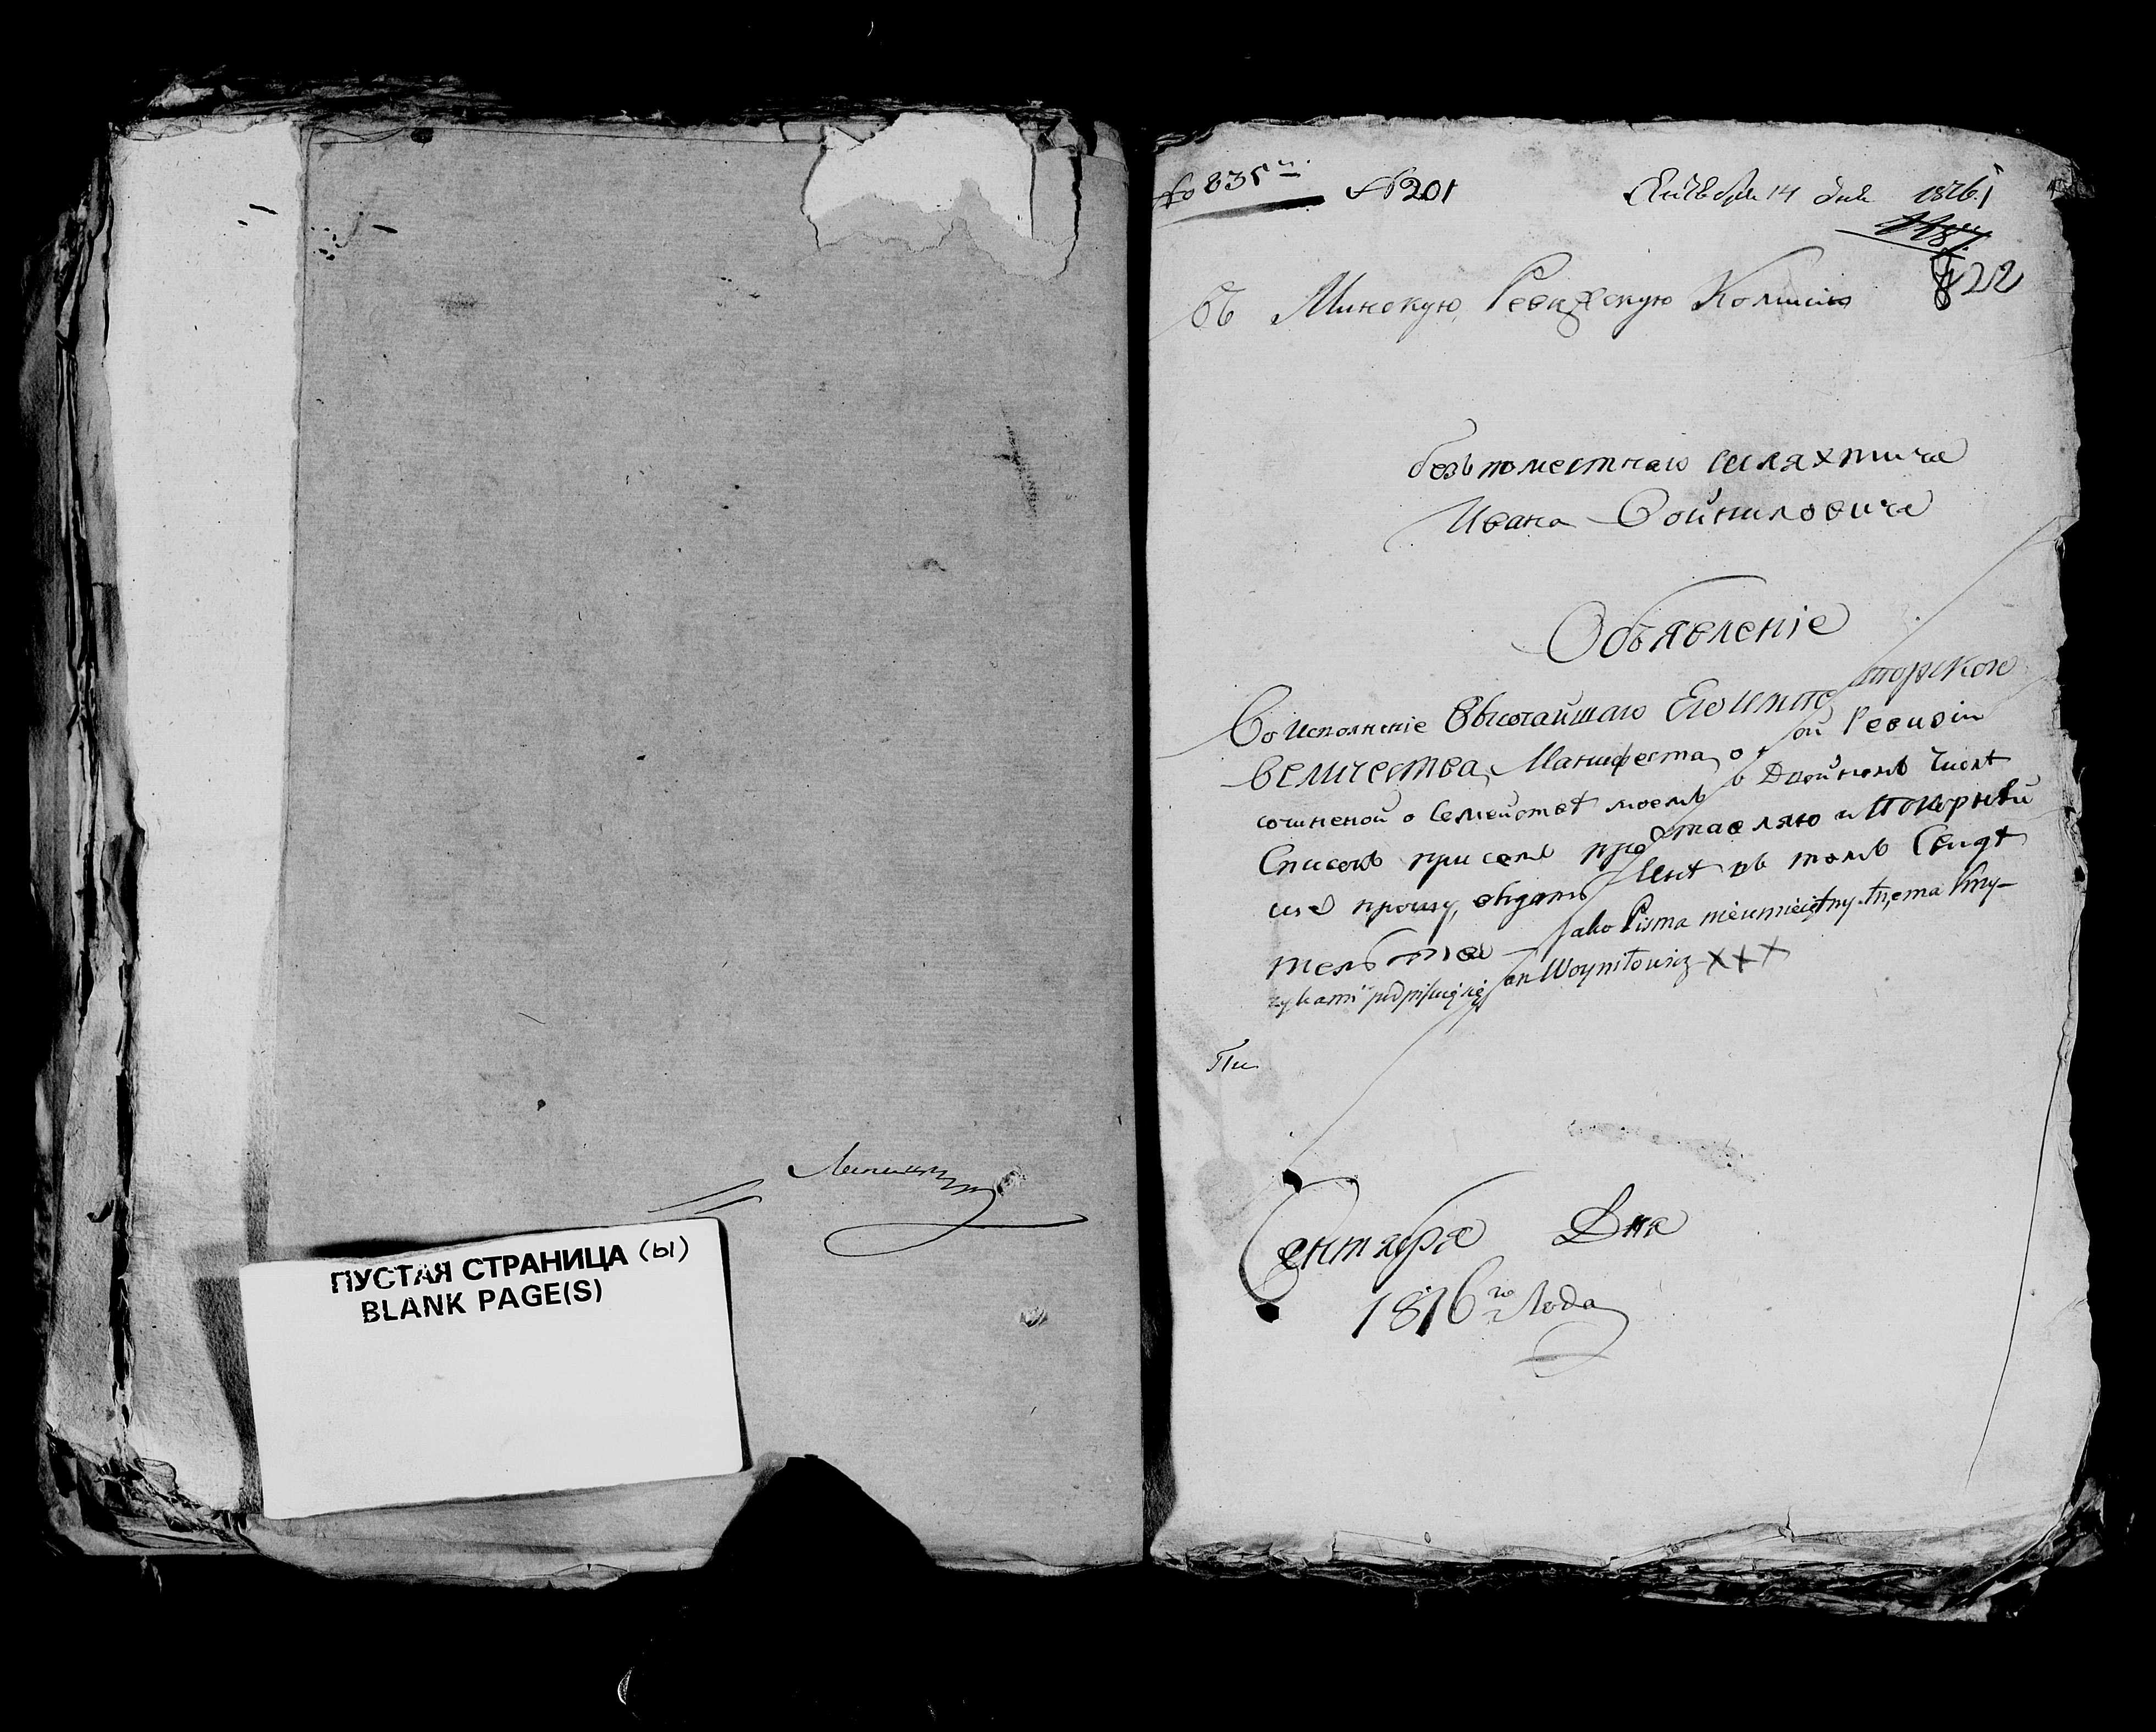 ПУСТАЯ СТРАНИЦА (ы)
BLANK PAGE(S)
№ 201
Генваря 14 дня 1816
822
Въ Минскую Ревизскую Комисию
безъпоместнаго шляхтича
Ивана Войниловича
Объявленіе
Во исполненіе Высочайшаго Его Императорскаго
величества Манифеста о Ревизіи
сочиненой о Семействѣ моемъ в Двойномъ Числѣ
Списокъ при семъ представляю и Покорнѣй
ше прошу, снѣ въ томъ Свидѣ
тельства jako Pisma nieumiejętny trzema krzy-
zykami podpisuję się Jan Woyniłowicz XXX
Пи
Сентября Дня
1816 го Года